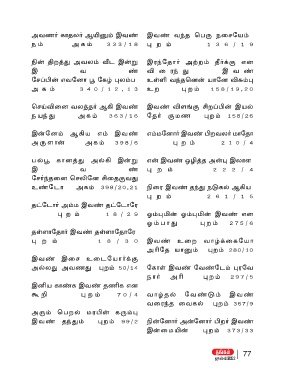 அவணர் காதலர் ஆயினும் இவண்
நம் அகம் 333/18
நின் திறத்து அவலம் வீட இன்று
இவண்
சேப்பின் எவனோ பூ கேழ் புலம்ப
அகம் 340/12,13
செய்வினை வலத்தர் ஆகி இவண்
நயந்து அகம் 363/16
இன்னேம் ஆகிய எம் இவண்
அருளான் அகம் 398/6
பல் பூ கானத்து அல்கி இன்று
இவண்
சேர்ந்தனை செலினே சிதைகுவது
உண்டோ அகம் 398/20,21
தட்டோர் அம்ம இவண் தட்டோரே
புறம் 18/29
தள்ளாதோர் இவண் தள்ளாதோரே
புறம் 18/30
இவண் இசை உடையோர்க்கு
அல்லது அவணது புறம் 50/14
இனிய காண்க இவண் தணிக என
கூறி புறம் 70/4
அரும் பெறல் மரபின் கரும்பு
இவண் தந்தும் புறம் 99/2
இவண் வந்த பெரு நசையேம்
புறம் 136/19
இரந்தோர் அற்றம் தீர்க்கு என
விரைந்து இவண்
உள்ளி வந்தனென் யானே விசும்பு
உற புறம் 158/19,20
இவண் விளங்கு சிறப்பின் இயல்
தேர் குமண புறம் 158/26
எம்மனோர் இவண் பிறவலர் மாதோ
புறம் 210/4
என் இவண் ஒழித்த அன்பு இலாள
புறம் 222/4
நிரை இவண் தந்து நடுகல் ஆகிய
புறம் 261/15
ஓம்புமின் ஓம்புமின் இவண் என
ஓம்பாது புறம் 275/6
இவண் உறை வாழ்க்கையோ
அரிதே யானும் புறம் 280/10
கோள் இவண் வேண்டேம் புரவே
நார் அரி புறம் 297/5
வாழ்தல் வேண்டும் இவண்
வரைந்த வைகல் புறம் 367/9
நின்னோர் அன்னோர் பிறர் இவண்
இன்மையின் புறம் 373/33
77